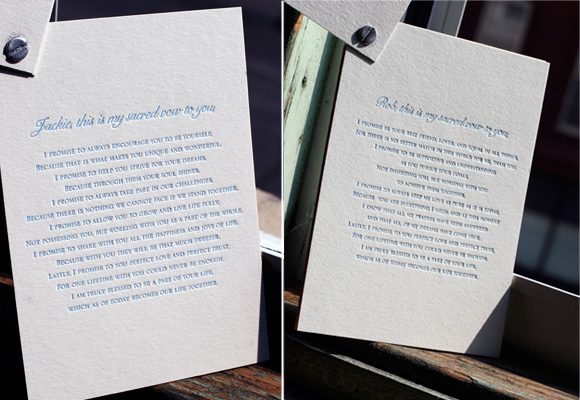 Jackie, this is my sacred vow to you,
I promise to always encourage you to be yourself,
Because that is what makes you unique and wonderful.
I promise to help you strive for your dreams,
Because through them your soul shines.
I promise to always take part in our challenges,
Because there is nothing we cannot face if we stand together,
I promise to allow you to grow and live life fully,
Not possessing you, but working with you as a part of the whole.
I promise to share with you all the happiness and joys of life,
Because with you they will be that much sweeter.
Lastly, I promise to you perfect love and perfect trust,
For one lifetime with you could never be enough.
I am truly blessed to be a part of your life,
which as of today becomes our life together.
Rob, this is my sacred vow to you,
I promise to be your best friend, lover, and equal in all things,
For there is no better match in this world for me than you.
I promise to be supportive and understanding
as you pursue your goals,
Not possessing you, but working with you
to achieve them together.
I promise to always keep our love as pure as it is today,
Because you are everything I need, and at this moment
I know that all my prayers have been answered
and that all of my dreams have come true.
Lastly, I promise to you perfect love and perfect trust,
For one lifetime with you could never be enough.
I am truly blessed to be a part of your life,
which as of today becomes our life together.